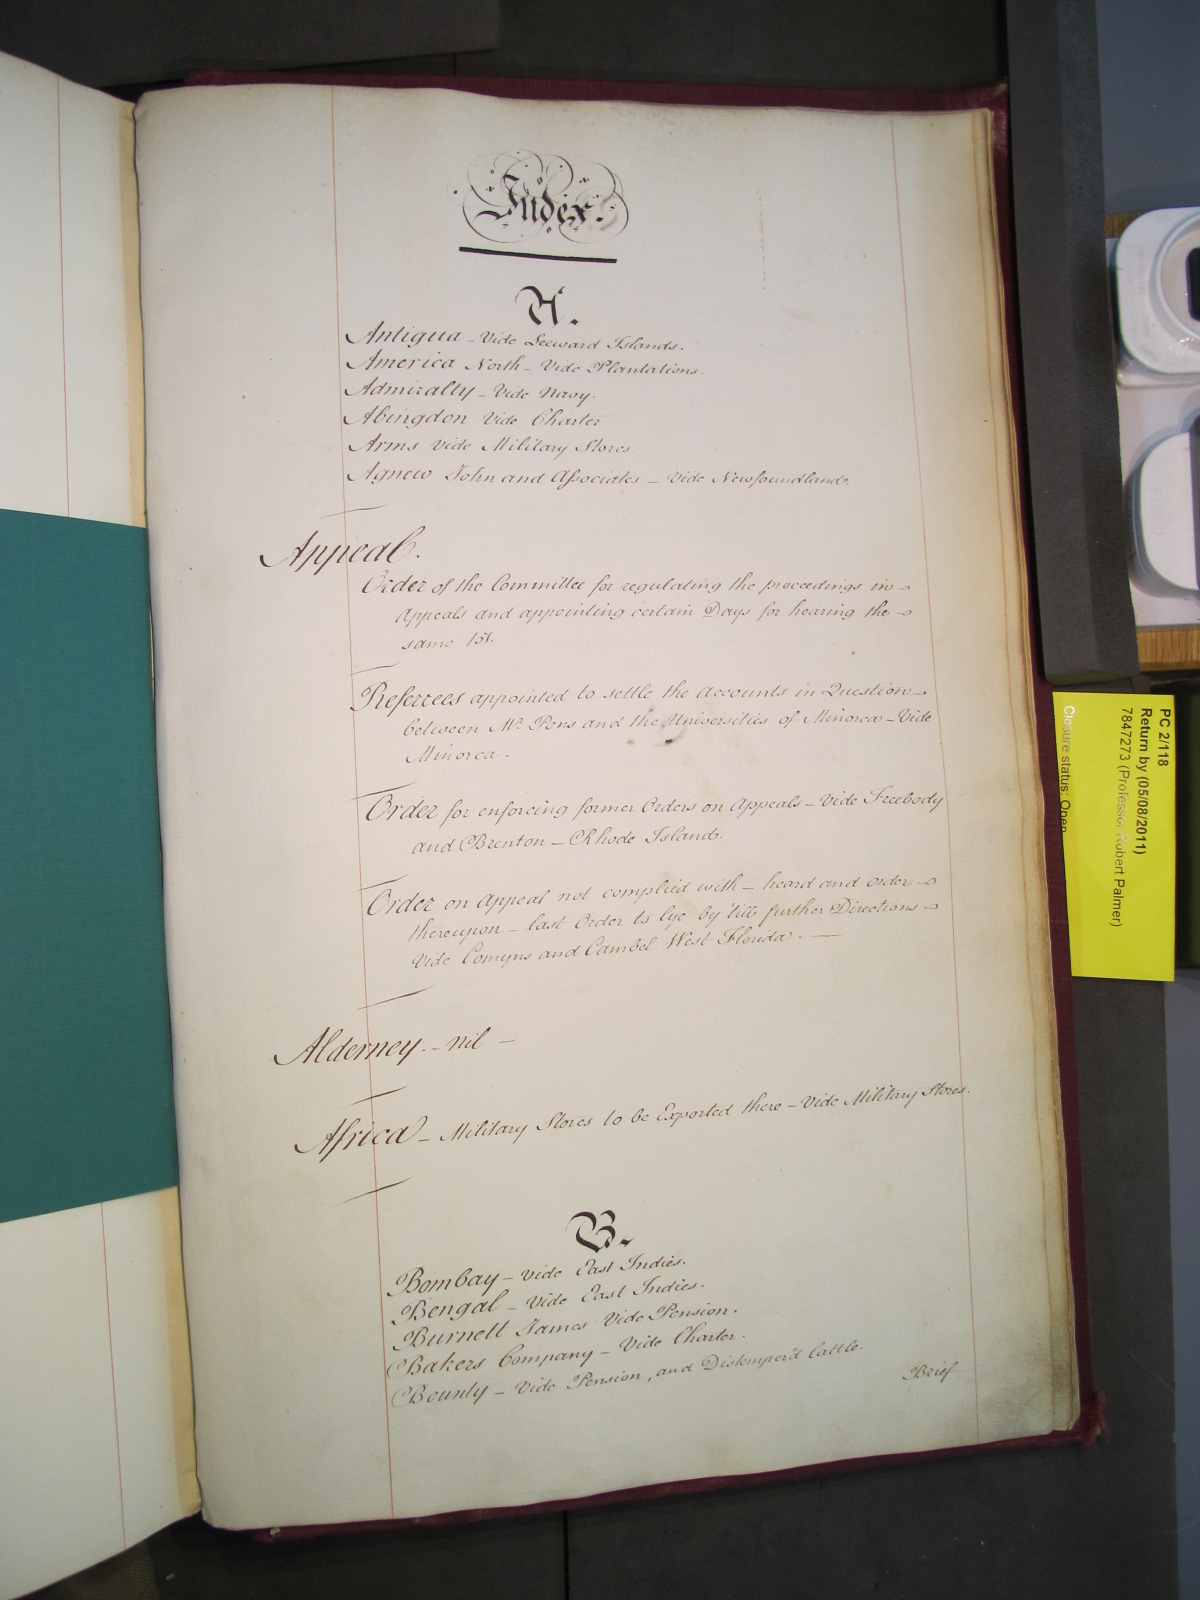 Index.
A.
Antigua - Vide Leeward Islands.
America North - Vide Plantations.
Admiralty - Vide Navy.
Abingdon Vide Charter
Arms Vide Military Stores.
Agnew John and Associates - Vide Newfoundland.
Appeal.
Order of the Committee for regulating the proceedings in
Appeals and appointing certain Days for hearing the
same 151.
Referrees appointed to settle the Accounts in Question
between Mr. Pons and the Universities of Minorca - Vide
Minorca.
Order for enforcing former Orders on Appeals - Vide Freebody
and Brenton - Rhode Island.
Order on Appeal not complied with - heard and order
thereupon - last Order to lye by 'till further Directions
Vide Comyns and Cambel West Florida. —
Alderney - nil -
Africa - Military Stores to be Exported there - Vide Military Stores.
B.
Bombay - Vide East Indies.
Bengal - Vide East Indies.
Burnett James Vide Pension.
Bakers Company - Vide Charter.
Bounty - Vide Pension, and Distemper'd Cattle.
Brief
PC 2/118
Return by (05/08/2011)
7847273 (Professor Robert Palmer)
Closure status: Open